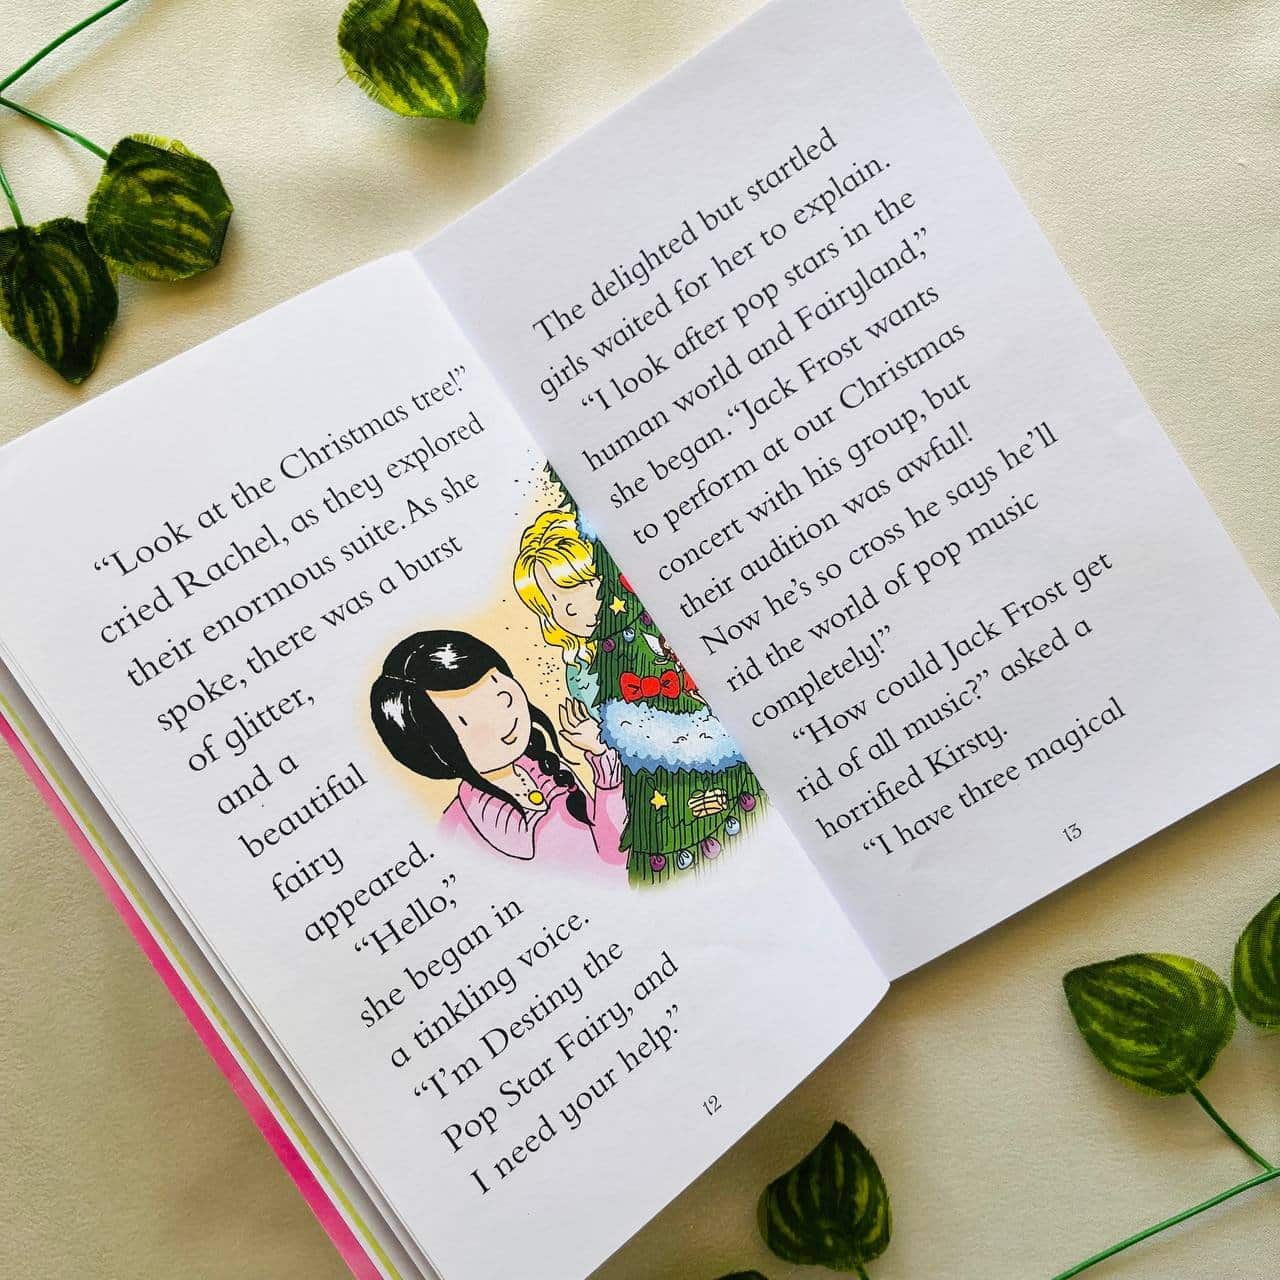 “Look at the Christmas tree!”
cried Rachel, as they explored
their enormous suite. As she
spoke, there was a burst
of glitter,
and a
beautiful
fairy
appeared.
“Hello,”
she began in
a tinkling voice.
“I’m Destiny the
Pop Star Fairy, and
I need your help.”
12
The delighted but startled
girls waited for her to explain.
“I look after pop stars in the
human world and Fairyland,”
she began. “Jack Frost wants
to perform at our Christmas
concert with his group, but
their audition was awful!
Now he’s so cross he says he’ll
rid the world of pop music
completely!”
“How could Jack Frost get
rid of all music?” asked a
horrified Kirsty.
“I have three magical
13